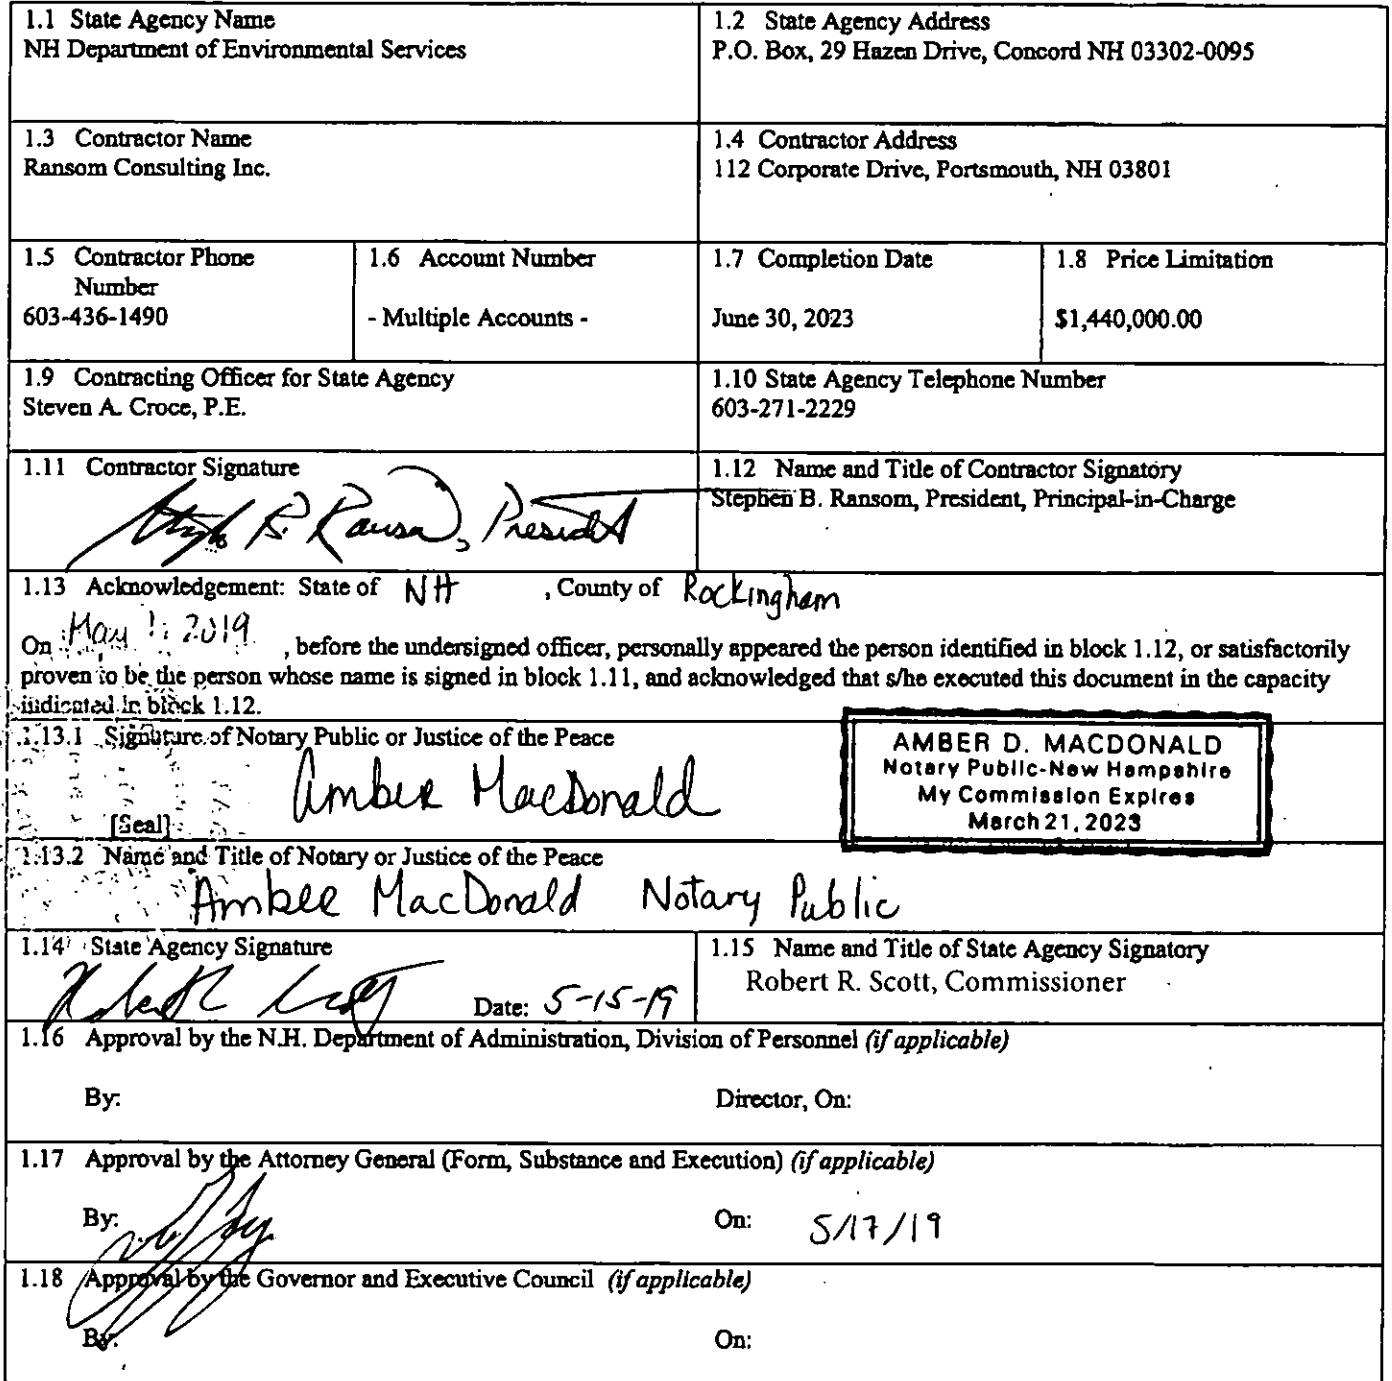 1.1 State Agency Name
NH Department of Environmental Services
1.2 State Agency Address
P.O. Box, 29 Hazen Drive, Concord NH 03302-0095
1.3 Contractor Name
Ransom Consulting Inc.
1.4 Contractor Address
112 Corporate Drive, Portsmouth, NH 03801
1.5 Contractor Phone
Number
603-436-1490
1.6 Account Number
- Multiple Accounts -
1.7 Completion Date
June 30, 2023
1.8 Price Limitation
$1,440,000.00
1.9 Contracting Officer for State Agency
Steven A. Croce, P.E.
1.10 State Agency Telephone Number
603-271-2229
1.11 Contractor Signature
B. Ransom, President
1.12 Name and Title of Contractor Signatory
Stephen B. Ransom, President, Principal-in-Charge
1.13 Acknowledgement: State of NH , County of Rockingham
On May 2019 , before the undersigned officer, personally appeared the person identified in block 1.12, or satisfactorily
proven to be the person whose name is signed in block 1.11, and acknowledged that s/he executed this document in the capacity
indicated in block 1.12.
1.13.1 Signature of Notary Public or Justice of the Peace
Amber MacDonald
[Seal]
AMBER D. MACDONALD
Notary Public-New Hampshire
My Commission Expires
March 21, 2023
1.13.2 Name and Title of Notary or Justice of the Peace
Amber MacDonald Notary Public
1.14 State Agency Signature
Date: 5-15-19
1.15 Name and Title of State Agency Signatory
Robert R. Scott, Commissioner
1.16 Approval by the N.H. Department of Administration, Division of Personnel (if applicable)
By: Director, On:
1.17 Approval by the Attorney General (Form, Substance and Execution) (if applicable)
By: On: 5/17/19
1.18 Approval by the Governor and Executive Council (if applicable)
By: On: